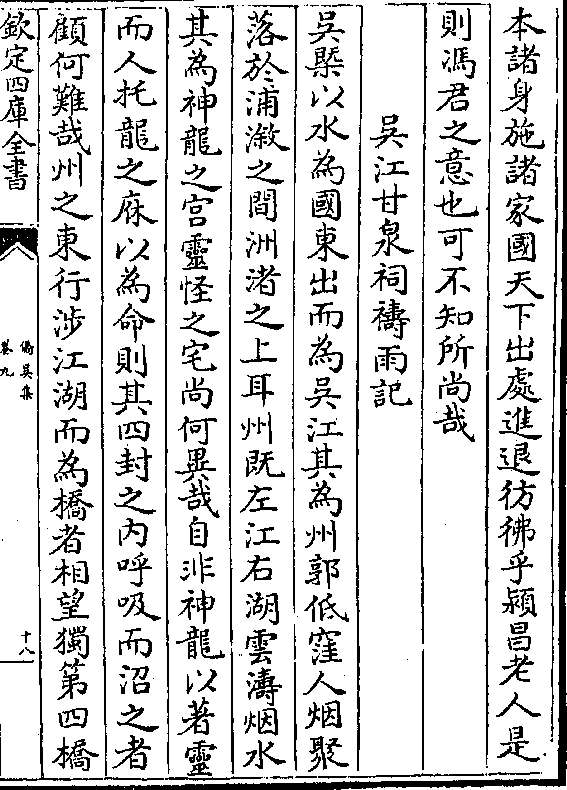 本諸身施諸家國天下出處進退彷彿乎潁昌老人是
則馮君之意也可不知所尚哉
吳江甘泉祠禱雨記
吳槩以水為國東出而為吳江其為州郭低窪人烟聚
落於浦溆之間洲渚之上耳州既左江右湖雲濤烟水
其為神龍之宫靈怪之宅尚何異哉自非神龍以著靈
而人托龍之庥以為命則其四封之内呼吸而沼之者
顧何難哉州之東行涉江湖而為橋者相望獨第四橋
欽定四庫全書
僑吳集
卷九
十八